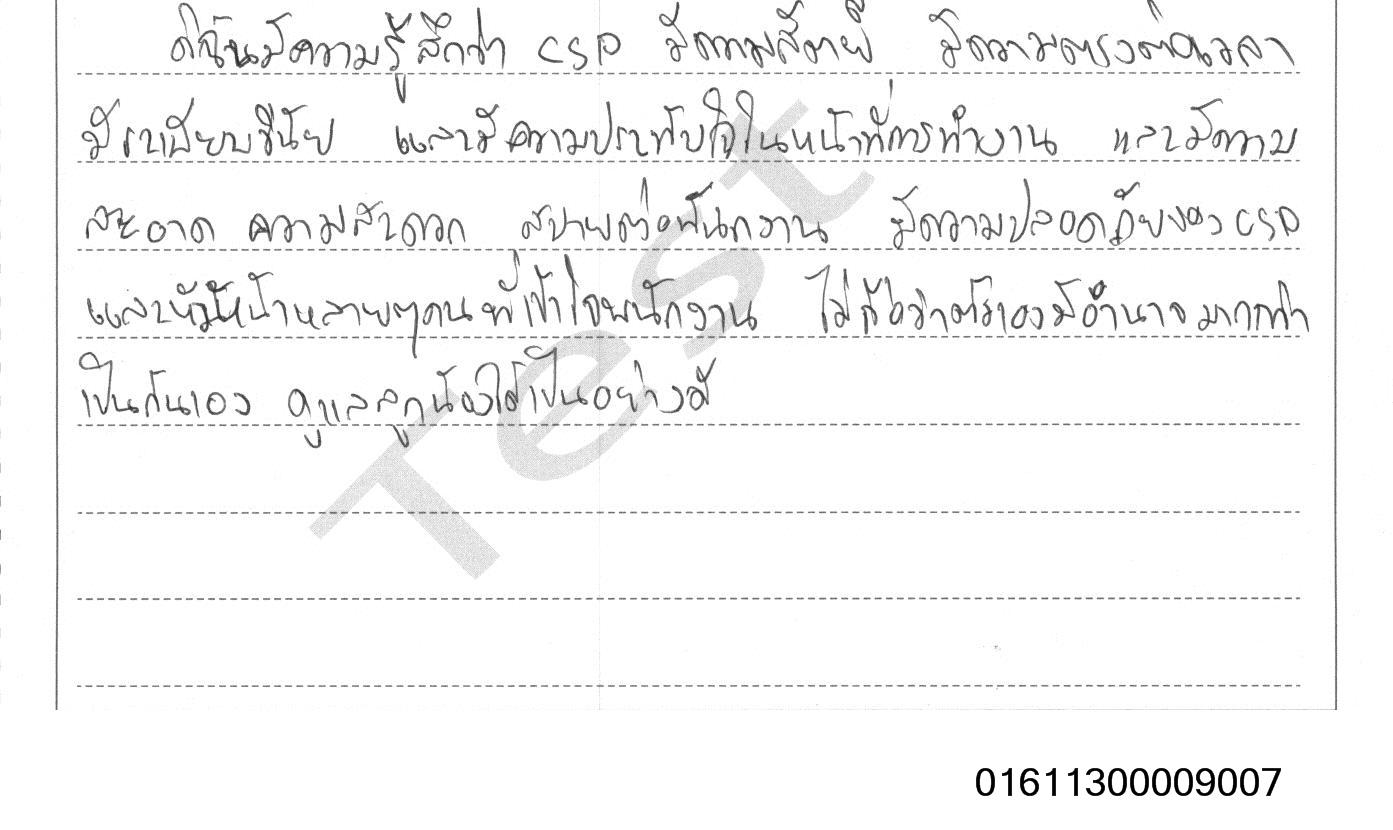 ดิฉันมีความรู้สึกว่า CSP มีความสามัคคี มีความตรงต่อเวลา
มีระเบียบวินัย และมีความประทับใจในหน้าที่การทำงาน และมีความ
สะอาด ความสะดวก สบายต่อพนักงาน มีความปลอดภัยของ CSP
และหัวหน้าหลายๆคนที่เข้าใจพนักงาน ไม่ถือว่าตัวเองมีอำนาจมากกว่า
เป็นกันเอง ดูแลลูกน้องได้เป็นอย่างดี
Test
01611300009007